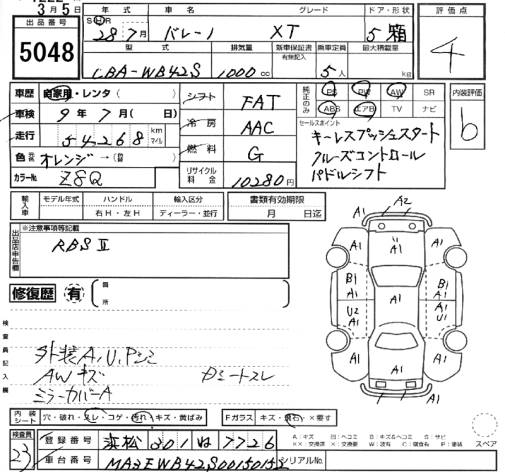 3月5日
出品番号
5048
年式 車名 グレード ドア・形状
28年7月 バレーノ XT 5 箱
型式 排気量 新車保証書 有無記入 乗車定員 最大積載量
CBA-WB42S 1000cc 5人 kg
評価点
4
車歴 自家用・レンタ( )
車検 9年7月( 日)
走行 54268 km マイル
色 元色 オレンジ→(色替)
カラーNo. Z8Q
シフト FAT
冷房 AAC
燃料 G
リサイクル料金 10280円
純正のみ PS PW AW SR
ABS エアB TV ナビ
セールスポイント
キーレスプッシュスタート
クルーズコントロール
パドルシフト
内装評価
b
輸入車 モデル年式 ハンドル 輸入区分
右H・左H ディーラー・並行
書類有効期限
月 日迄
出品店申告欄
※注意事項等記載
RBS II
修復歴 有 箇所
検査員記入欄
外装A,U,Pシミ
AWキズ シートスレ
ミラーカバーA
A1 A2
A1 A1 A1
B1 A1 A1 A1
U2 A1 A1 U1
A1 A1 A1
A1
内装シート 穴・破れ・スレ・コゲ・汚れ・キズ・黄ばみ
Fガラス キズ・飛石・X要す
スペア
検査員
23
登録番号 浜松 301 ぬ 7726
車台番号 MA3EWB42S00150152 シリアルNo.